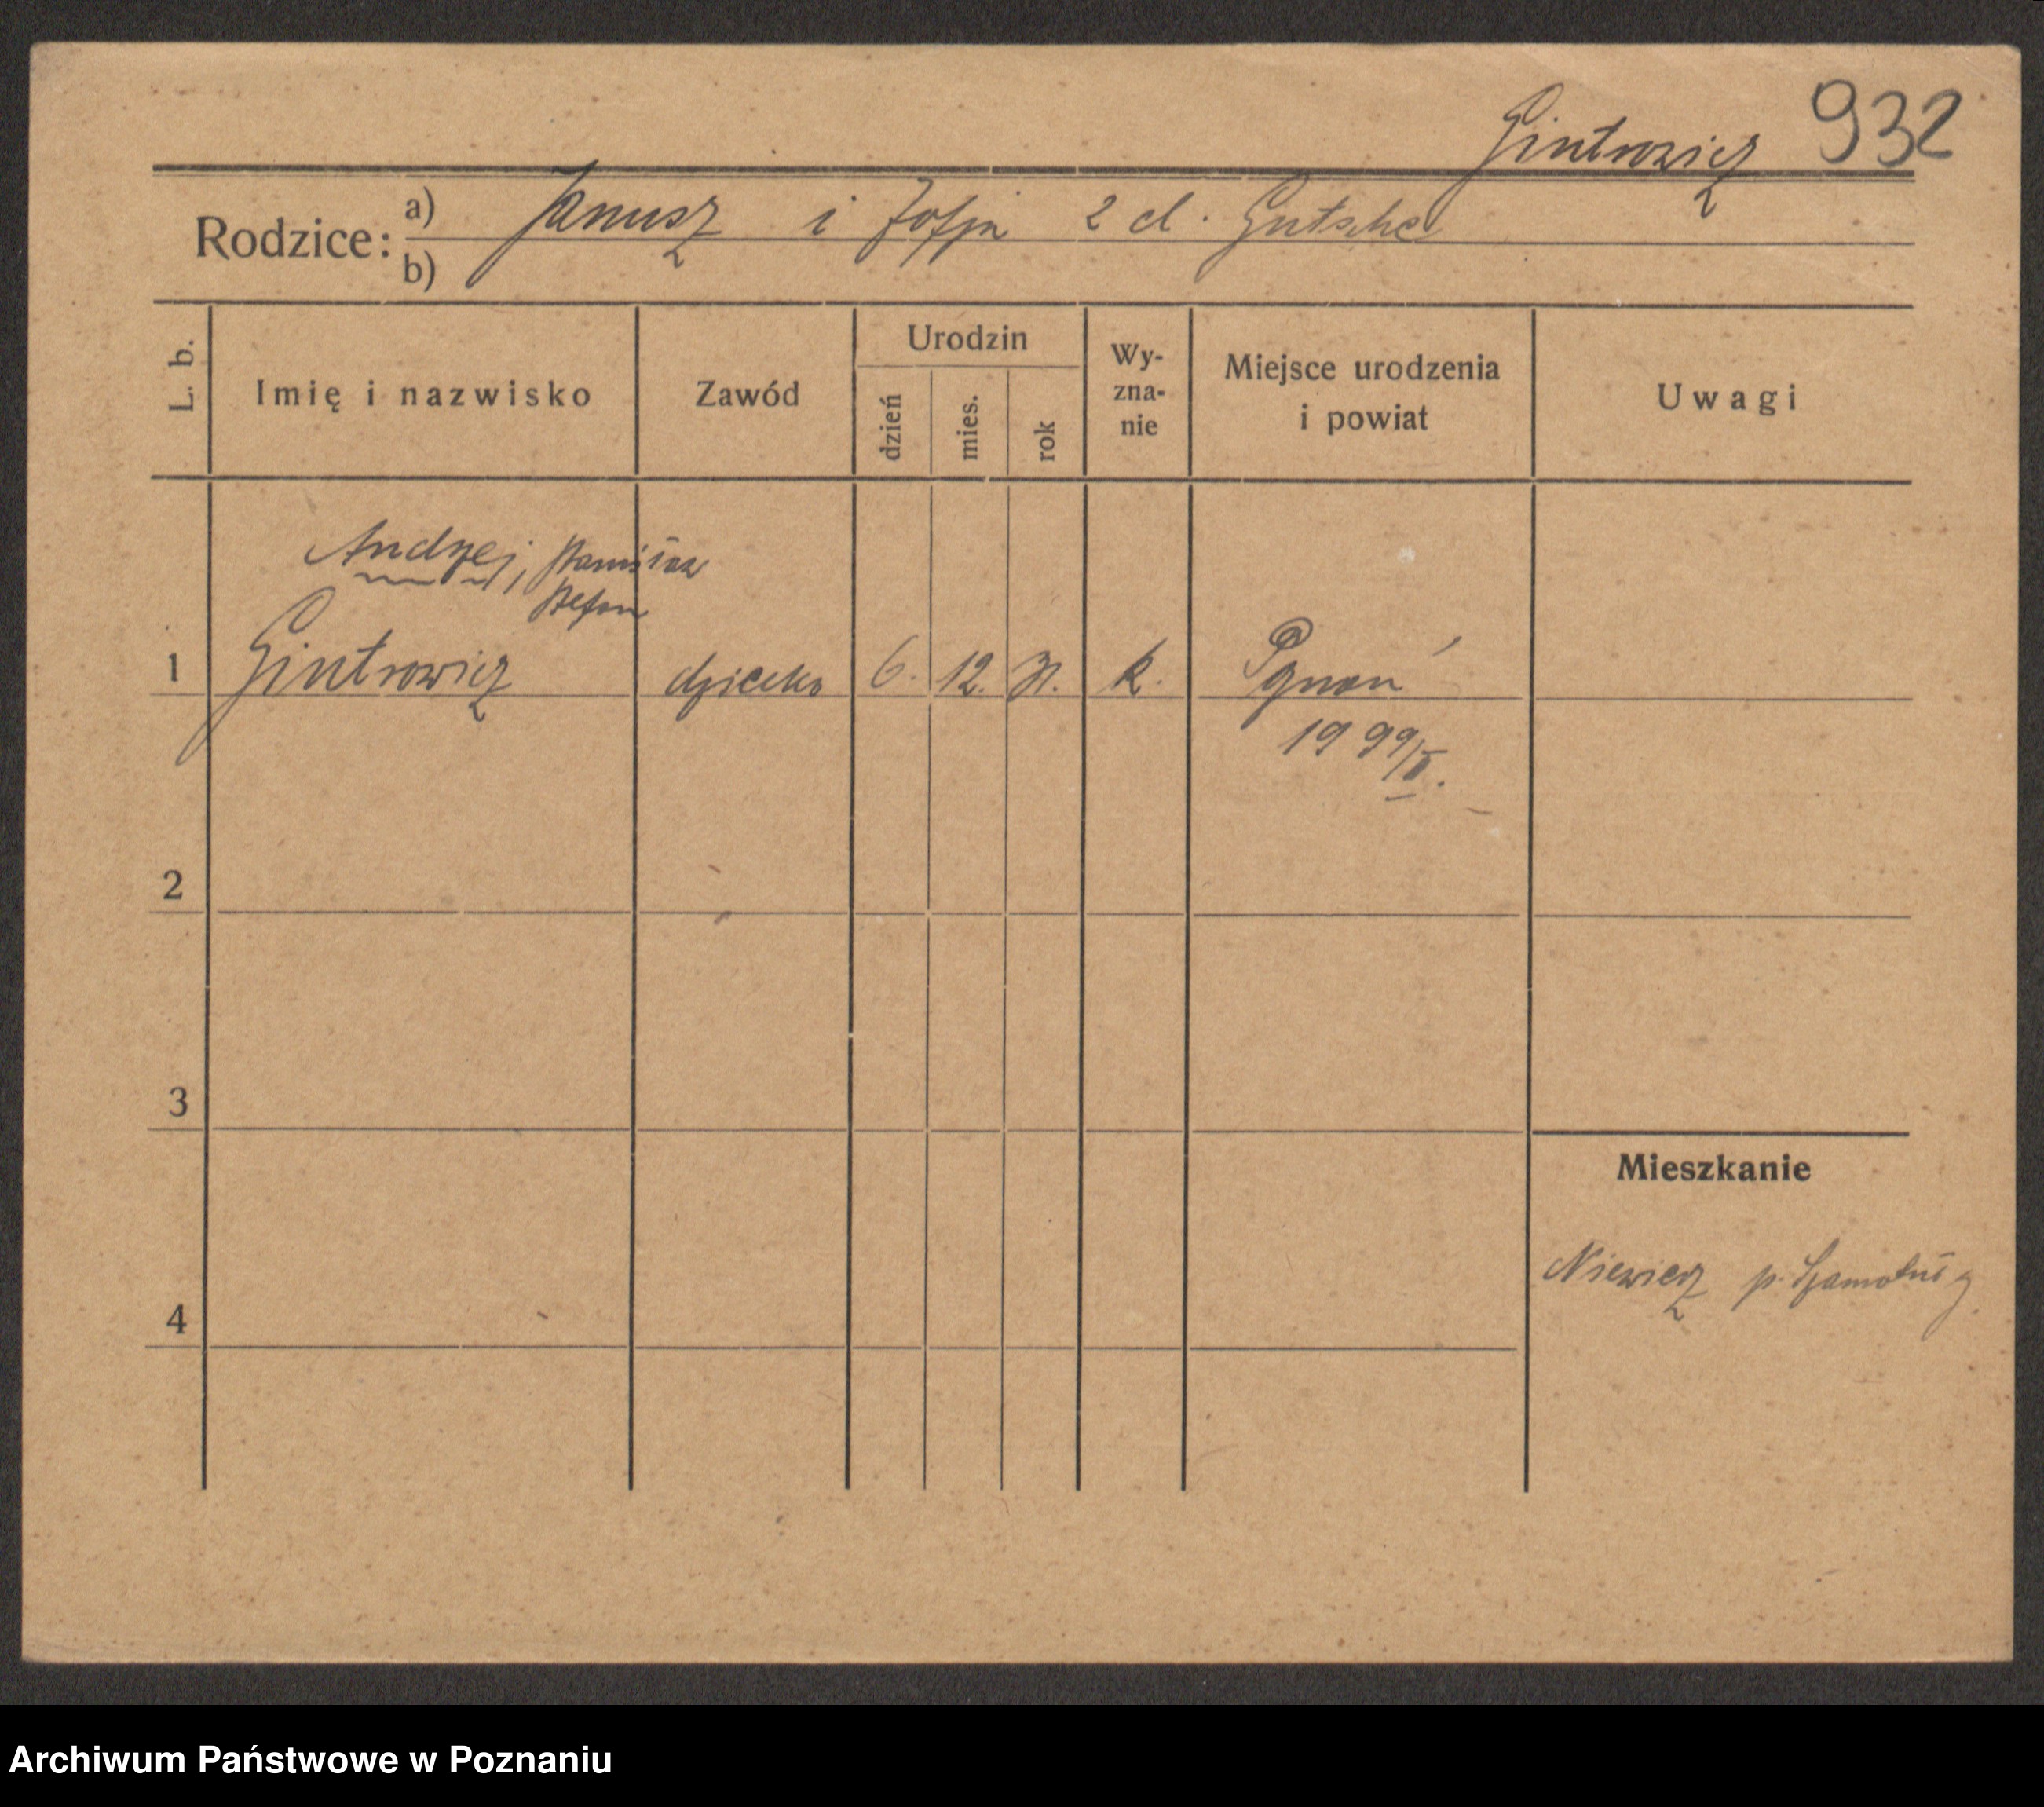 Gintrowicz 932
Rodzice: a) Janusz i Zofja z d. Gutsche
b)
L. b.
Imię i nazwisko
Zawód
Urodzin
dzień
mies.
rok
Wy-
zna-
nie
Miejsce urodzenia
i powiat
Uwagi
Andrzej, Stanisław
Stefan
1 Gintrowicz dziecko 6. 12. 31. k. Pznań
1999/II.
2
3
Mieszkanie
Niewierz p. Szamotuły
4
Archiwum Państwowe w Poznaniu